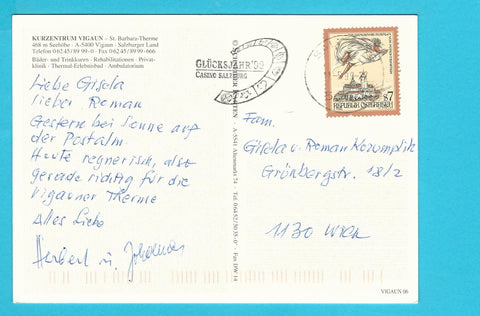 KURZENTRUM VIGAUN – St. Barbara-Therme
468 m Seehöhe · A-5400 Vigaun · Salzburger Land
Telefon 0 62 45/89 99-0 · Fax 0 62 45/89 99-666
Bäder- und Trinkkuren · Rehabilitationen · Privat-
klinik · Thermal-Erlebnisbad · Ambulatorium
Liebe Gisela
lieber Roman
Gestern bei Sonne auf
der Postalm.
Heute regnerisch, also
gerade richtig für die
Vigauner Therme
Alles Liebe
Herbert u.
GLÜCKSJAHR '99
CASINO SALZBURG
A-5541 Altenmarkt
Fax DW 14
7
REPUBLIK ÖSTERREICH
Fam.
Gisela u. Roman
Grünbergstr. 18/2
1130 WIEN
VIGAUN 06